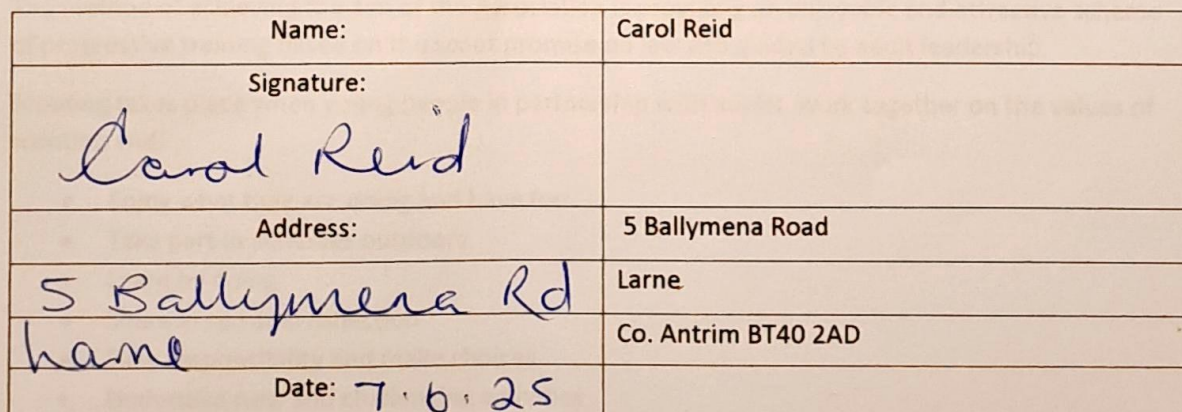 Name: Carol Reid
Signature:
Carol Reid
Address: 5 Ballymena Road
5 Ballymena Rd Larne
Larne Co. Antrim BT40 2AD
Date: 7.6.25